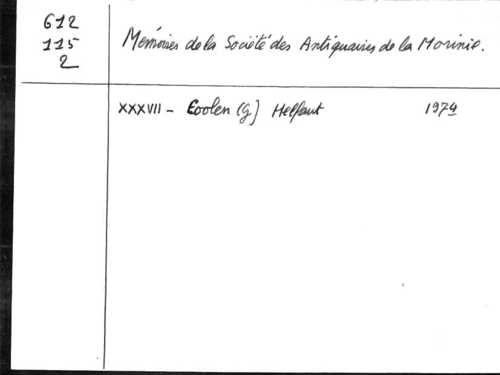 612
115
2
Mémoires de la Société des Antiquaires de la Morinie.
XXXVII - Coolen (G) Helfaut 1974